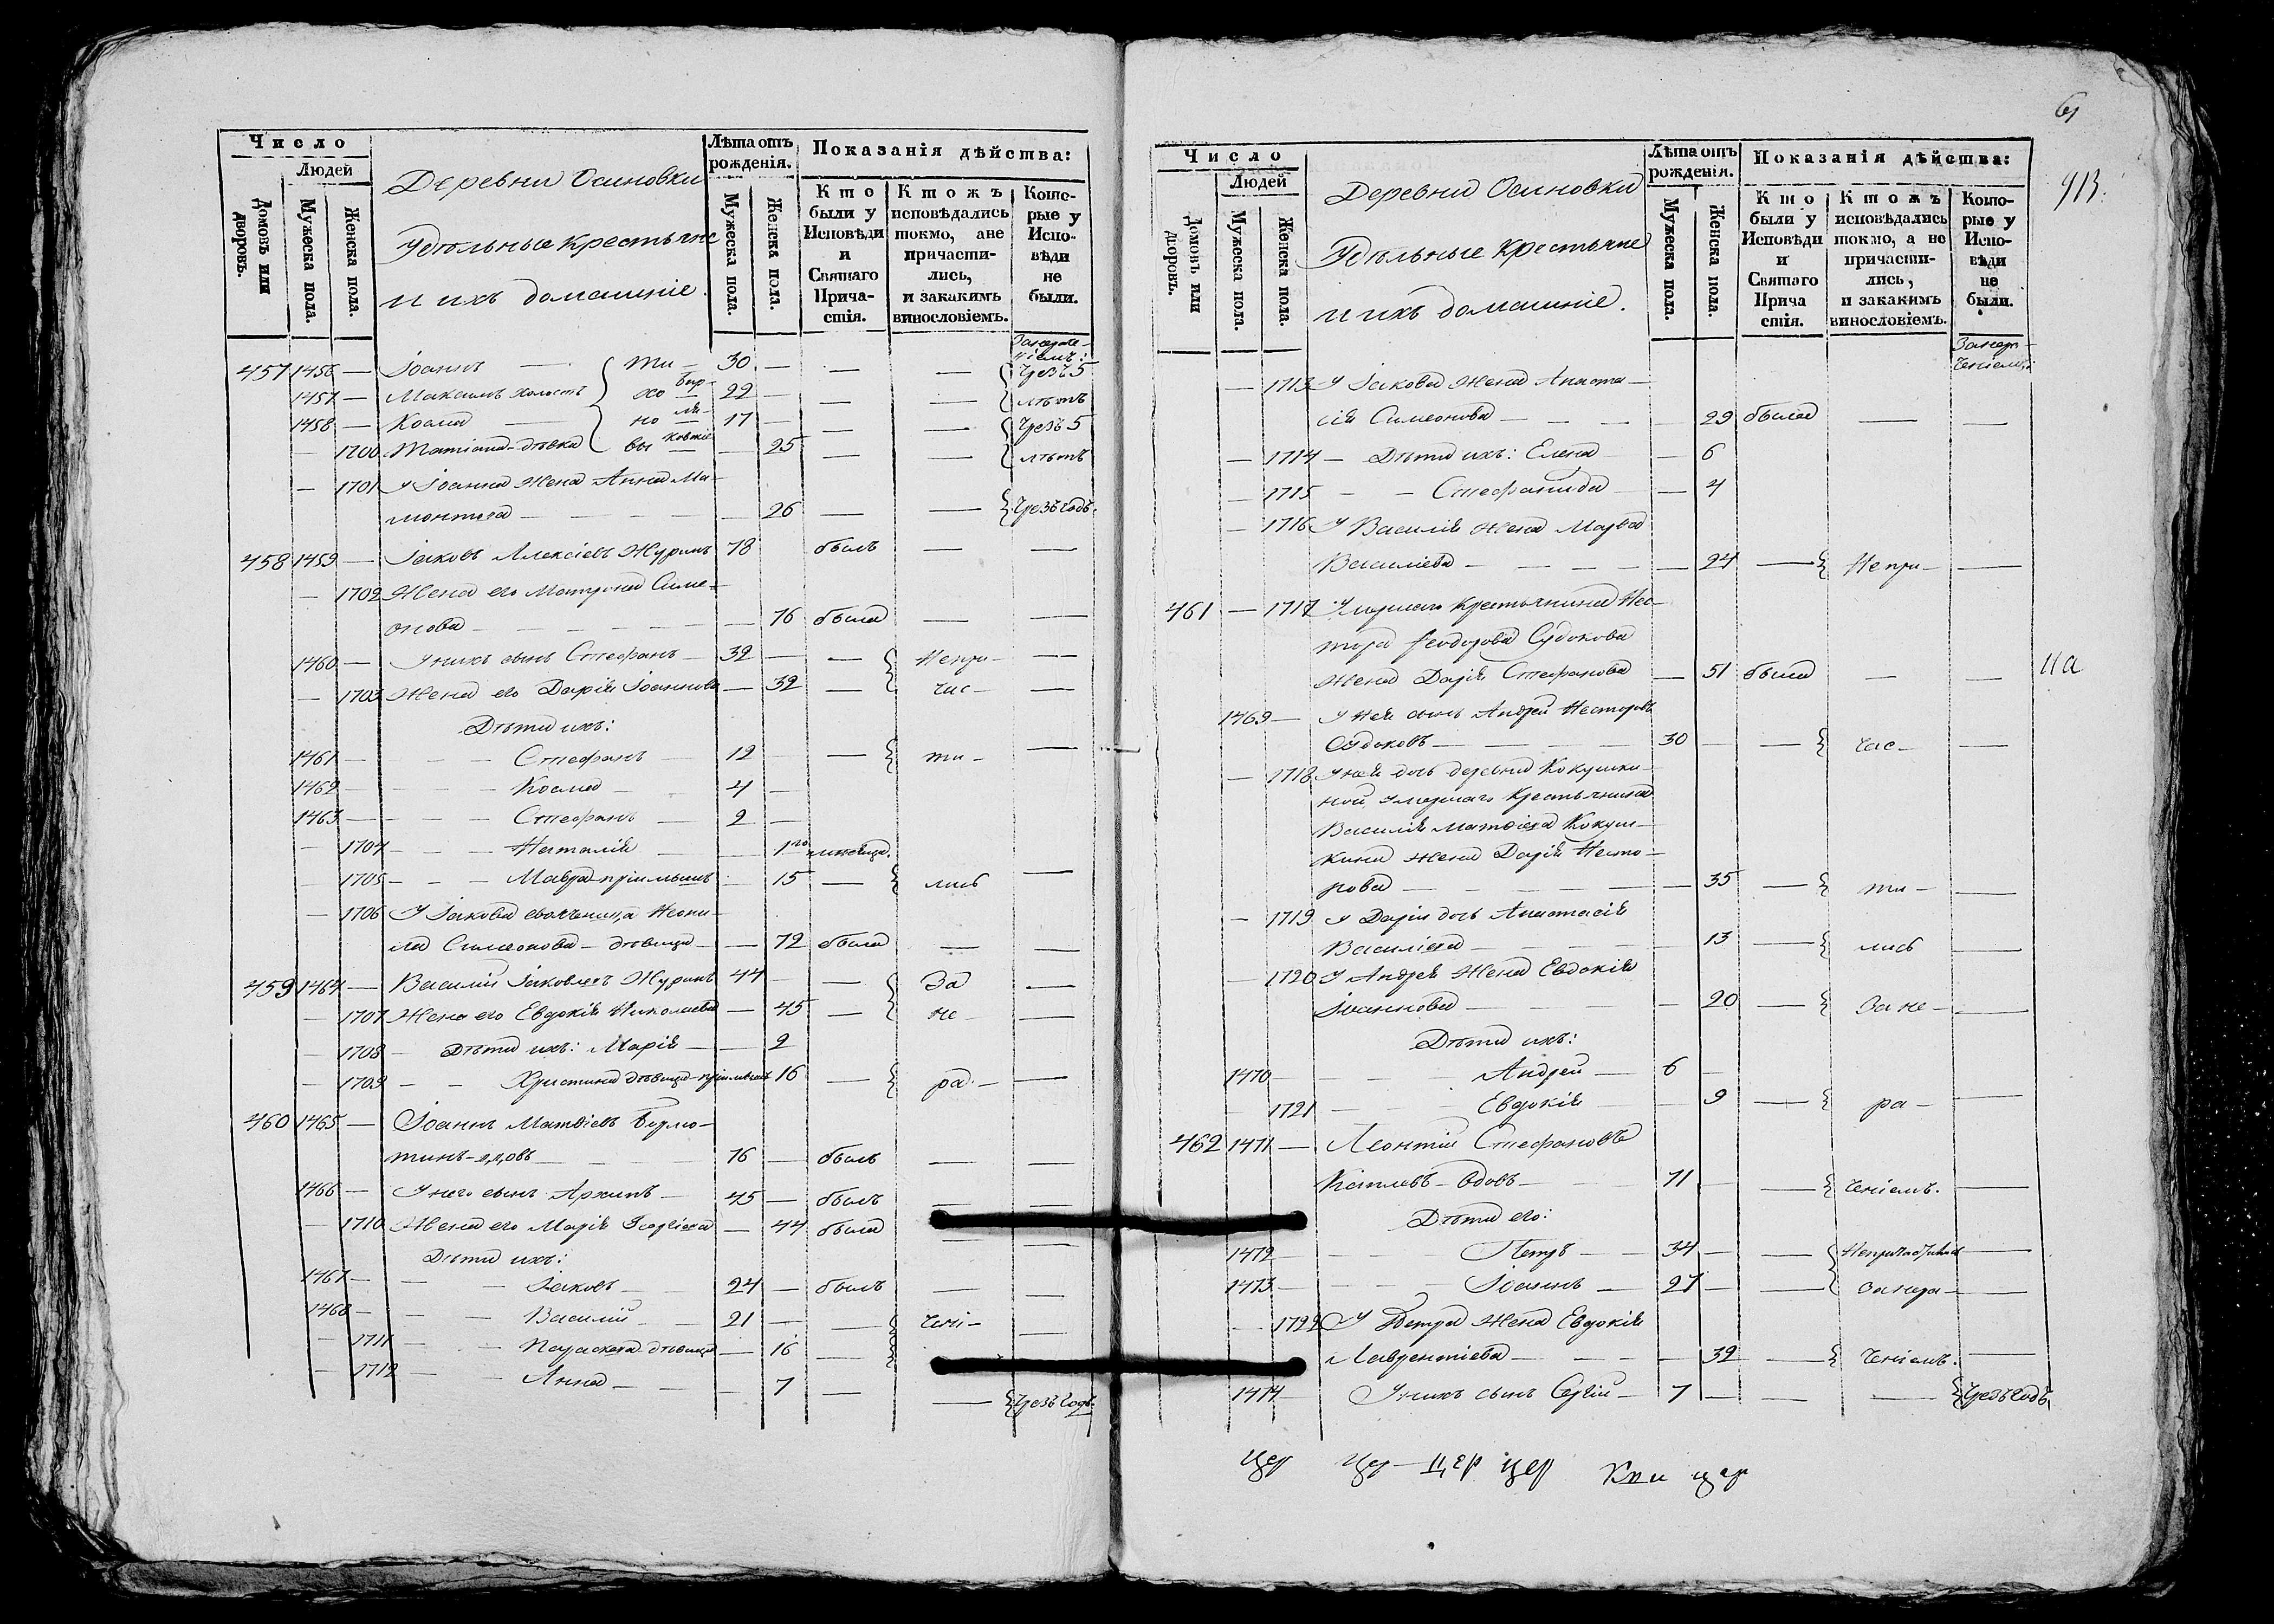 Число
Людей
Домовъ или дворовъ.
Мужеска пола.
Женска пола.
Деревни Осиновки
Удѣльные крестьяне
и ихъ домашніе.
Лѣта отъ рожденія.
Мужеска пола.
Женска пола.
Показанія дѣйства:
Кто были у Исповѣди и Святаго Прича-стія.
Ктожъ исповѣдались токмо, а не причасти-лись, и закакимъ винословіемъ.
Кото-рые у Испо-вѣди не были.
457 1456 — Іоаннъ — Ти — 30 — — — Чрезъ 5
1457 — Максимъ холостъ хо 22 — — — лѣтъ
1458 — Косма — но 17 — — — Чрезъ 5
— 1700 Татіана дѣвка вы — 25 — — лѣтъ
— 1701 У Іоанна жена Анна Ма-
монтова — — 26 — — Чрезъ годъ.
458 1459 — Іаковъ Алексіевъ Журинъ 78 былъ — —
— 1702 Жена его Матрона Симе-
онова — — 76 была — —
1460 — У нихъ сынъ Стефанъ — 32 — — Непри- —
— 1703 Жена его Дарія Іоаннова — 32 — час- —
Дѣти ихъ:
1461 — — Стефанъ — 12 — — ти- —
1462 — — Косма — 4 —
1463 — — Стефанъ — 2 —
— 1704 — — Наталія — — 1
— 1705 — — Мавра пріемышъ — 15 — лись —
— 1706 У Іакова своячница Неони-
ла Симеонова — дѣвица — — 72 была — —
459 1464 — Василій Іаковлевъ Журинъ 44 — — За —
— 1707 Жена его Евдокія Николаева — 45 — не- —
— 1708 — Дѣти ихъ: Марія — — 2
— 1709 — — Христина дѣвица пріемышъ 16 — ра- —
460 1465 — Іоаннъ Матѳіевъ Бурмо-
тинъ вдовъ — 76 — былъ — —
1466 — У него сынъ Архипъ — 45 — былъ — —
— 1710 Жена его Марія Георгіева — 44 была — —
Дѣти ихъ:
1467 — — Іаковъ — 24 — былъ — —
1468 — — Василій — 21 — — чені- —
— 1711 — — Параскева дѣвица — 16 —
— 1712 — — Анна — — 7 — — Чрезъ годъ.
61
913.
Число
Людей
Домовъ или дворовъ.
Мужеска пола.
Женска пола.
Деревни Осиновки
Удѣльные крестьяне
и ихъ домашніе.
Лѣта отъ рожденія.
Мужеска пола.
Женска пола.
Показанія дѣйства:
Кто были у Исповѣди и Святаго Прича стія.
Ктожъ исповѣдались токмо, а не причасти-лись, и закакимъ винословіемъ.
Кото-рые у Испо-вѣди не были.
— 1713 У Іакова жена Анаста-
сія Симеонова — — — 29 была — —
— 1714 — Дѣти ихъ: Елена — 6
— 1715 — — Стефанида — 4
— 1716 У Василія жена Марѳа
Василіева — — — 24 — Непри- —
461 — 1717 Умершаго крестьянина Нес-
тора Ѳеодорова Судокова
жена Дарія Стефанова — 51 была — —
1469 — У нея сынъ Андрей Несторовъ
Судоковъ — — 30 — — час- —
— 1718 У нея дочь деревни Кокушки-
ной умершаго крестьянина
Василія Матѳіева Кокуш-
кина жена Дарія Несто-
рова — — — 35 — ти- —
— 1719 У Даріи дочь Анастасія
Василіева — — 13 — лись —
— 1720 У Андрея жена Евдокія
Іоаннова — — 20 — За не- —
Дѣти ихъ:
1470 — — Андрей — 6 —
— 1721 — — Евдокія — — 9 — ра- —
462 1471 — Леонтій Стефановъ
вдовъ — 71 — — ченіемъ. —
Дѣти его:
1472 — — Петръ — 34 — — —
1473 — — Іоаннъ — 27 — — —
— 1722 У Петра жена Евдокія
Лаврентіева — — — 32 — ченіемъ. —
1474 — У нихъ сынъ Сергій — 7 — — — Чрезъ годъ.
цер цер — цер цер